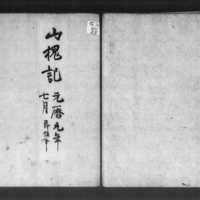 山槐記 元暦元年
七月